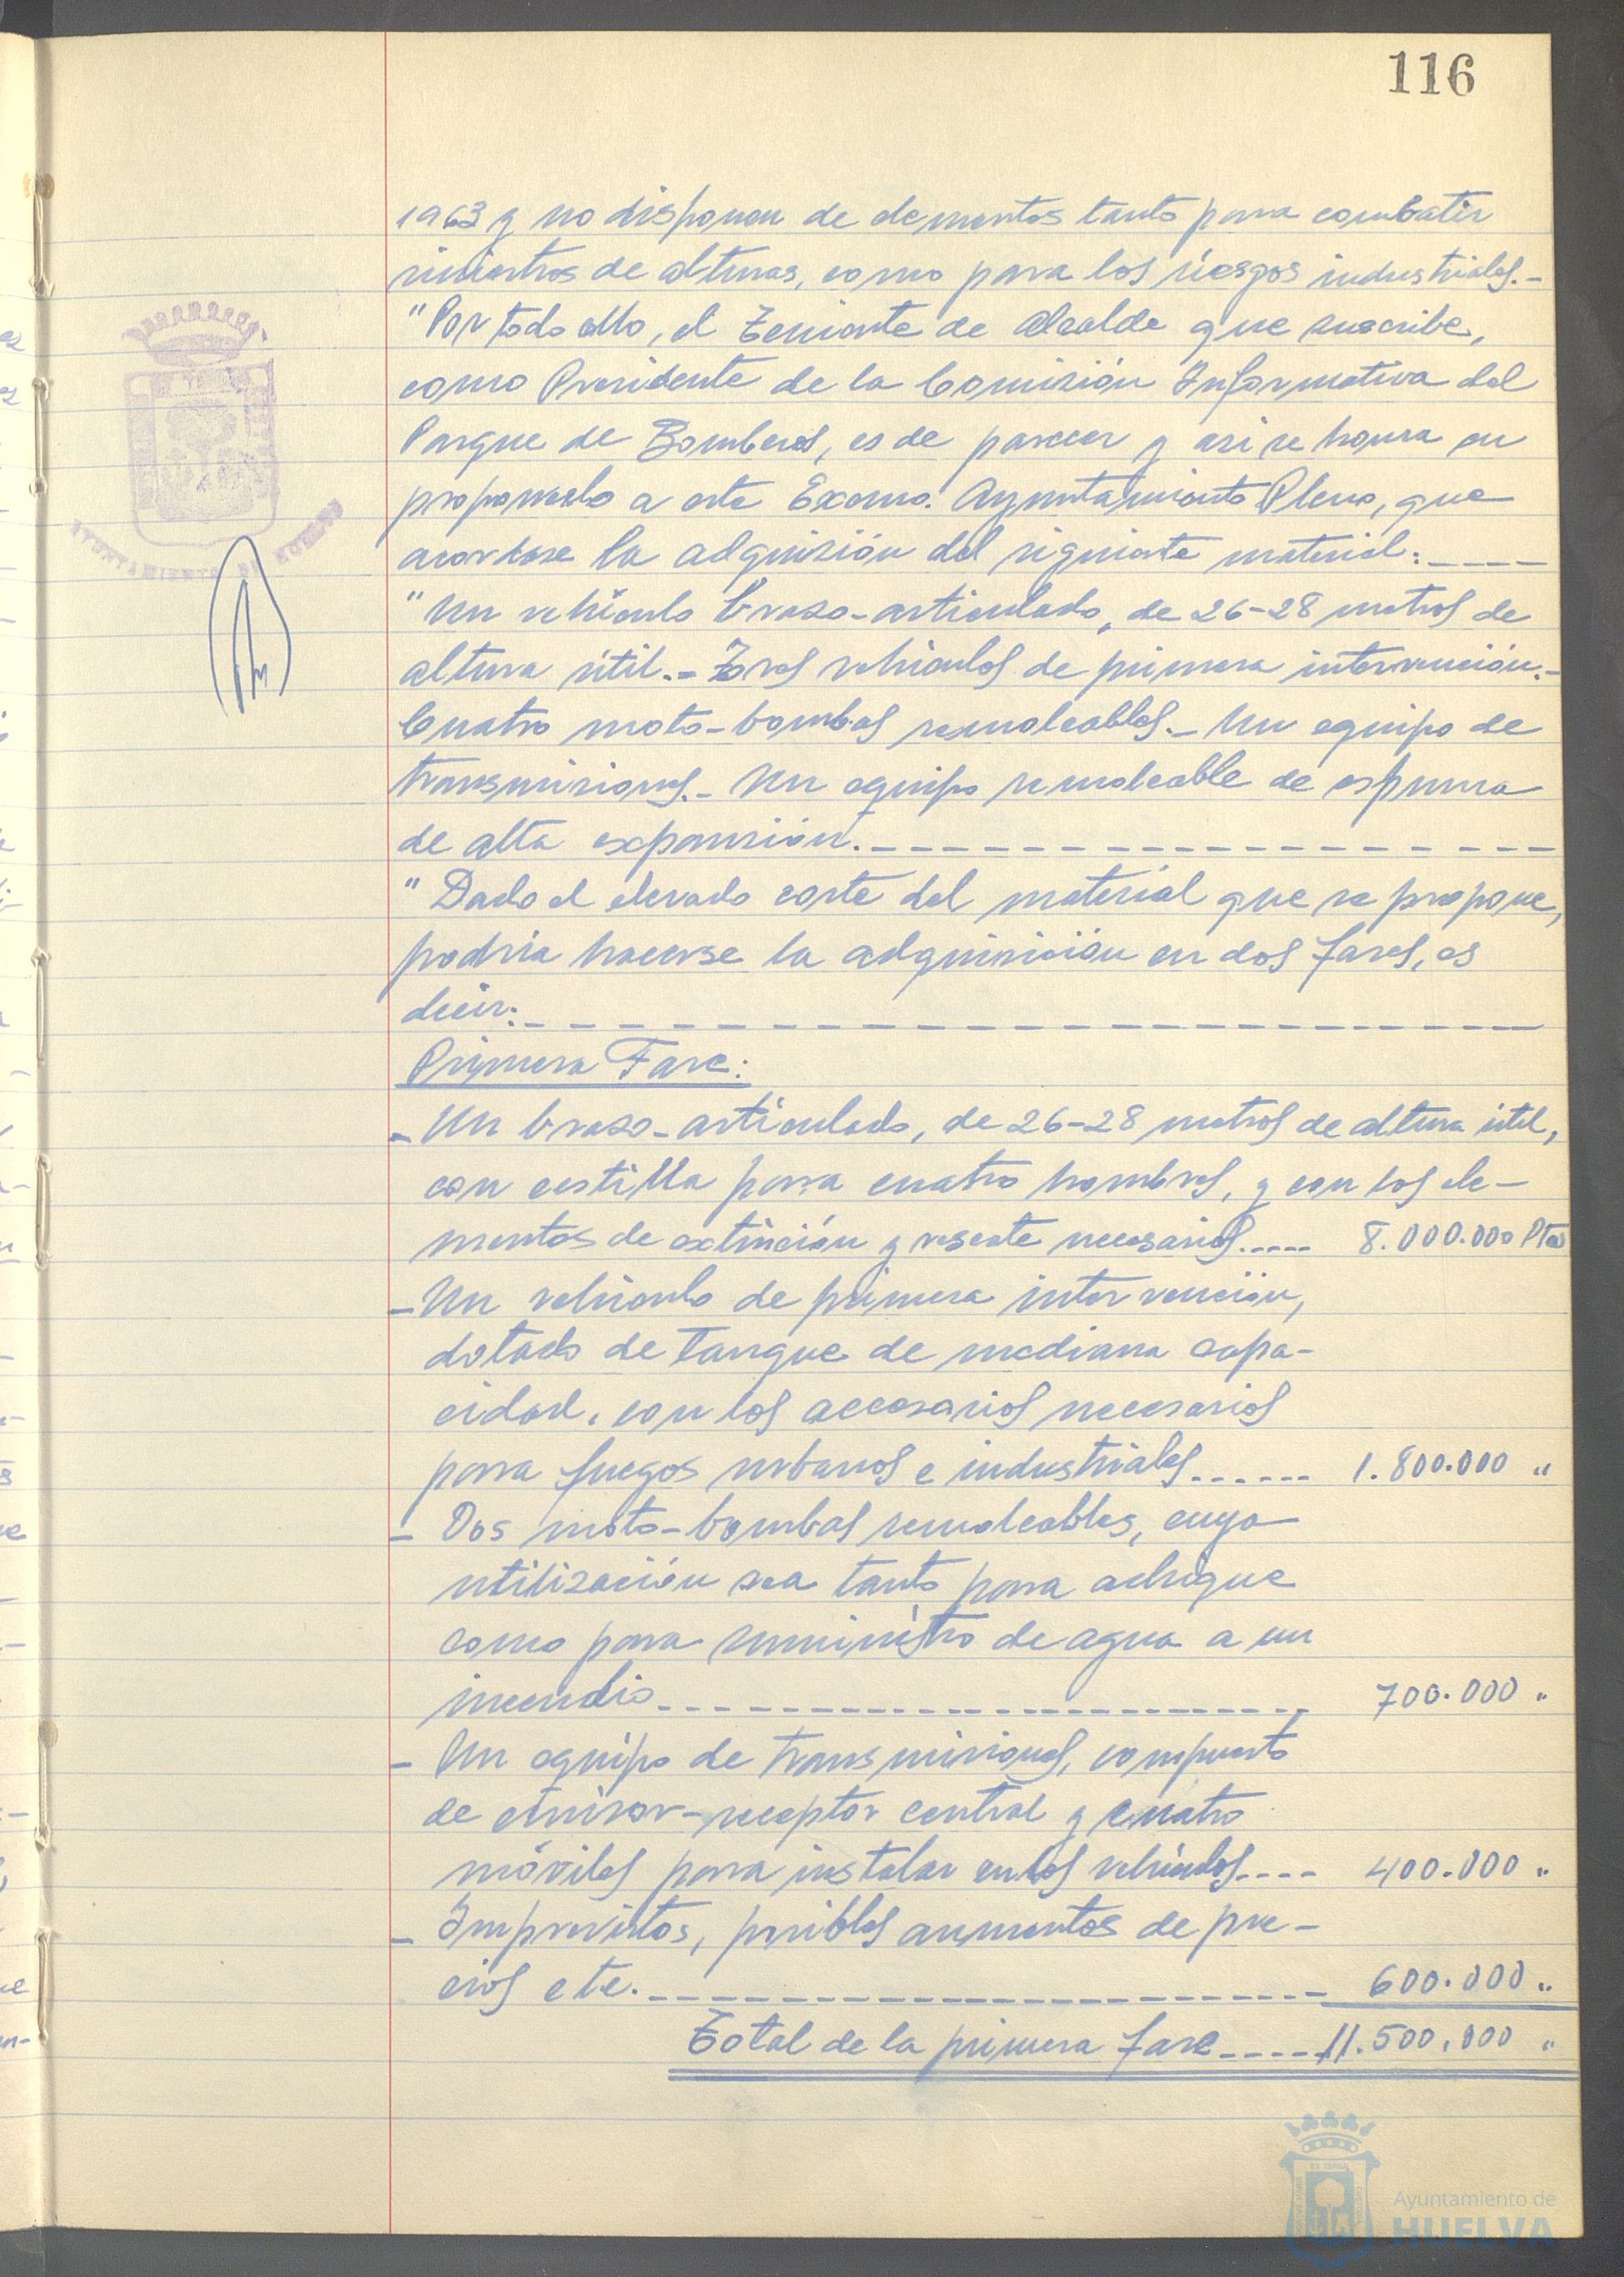 116
1963 y no disponen de elementos tanto para combatir
siniestros de alturas, como para los riesgos industriales.-
"Por todo ello, el Teniente de Alcalde que suscribe,
como Presidente de la Comisión Informativa del
Parque de Bomberos, es de parecer y así se honra en
proponerlo a este Excmo. Ayuntamiento Pleno, que
acordase la adquisición del siguiente material:----
"Un vehículo brazo-articulado, de 26-28 metros de
altura útil.- Tres vehículos de primera intervención.-
Cuatro moto-bombas remolcables.- Un equipo de
transmisiones.- Un equipo remolcable de espuma
de alta expansión.-----
"Dado el elevado coste del material que se propone,
podría hacerse la adquisición en dos fases, es
decir:-----
Primera Fase:
- Un brazo-articulado, de 26-28 metros de altura útil,
con cestilla para cuatro hombres, y con los ele-
mentos de extinción y rescate necesarios..... 8.000.000 Ptas
- Un vehículo de primera intervención,
dotado de tanque de mediana capa-
cidad, con los accesorios necesarios
para fuegos urbanos e industriales...... 1.800.000 "
- Dos moto-bombas remolcables, cuya
utilización sea tanto para achique
como para suministro de agua a un
incendio----- 700.000 "
- Un equipo de transmisiones, compuesto
de emisor-receptor central y cuatro
móviles para instalar en los vehículos---- 400.000 "
- Imprevistos, posibles aumentos de pre-
cios etc.----- 600.000 "
Total de la primera fase----- 11.500.000 "
AYUNTAMIENTO DE HUELVA
Ayuntamiento de
HUELVA